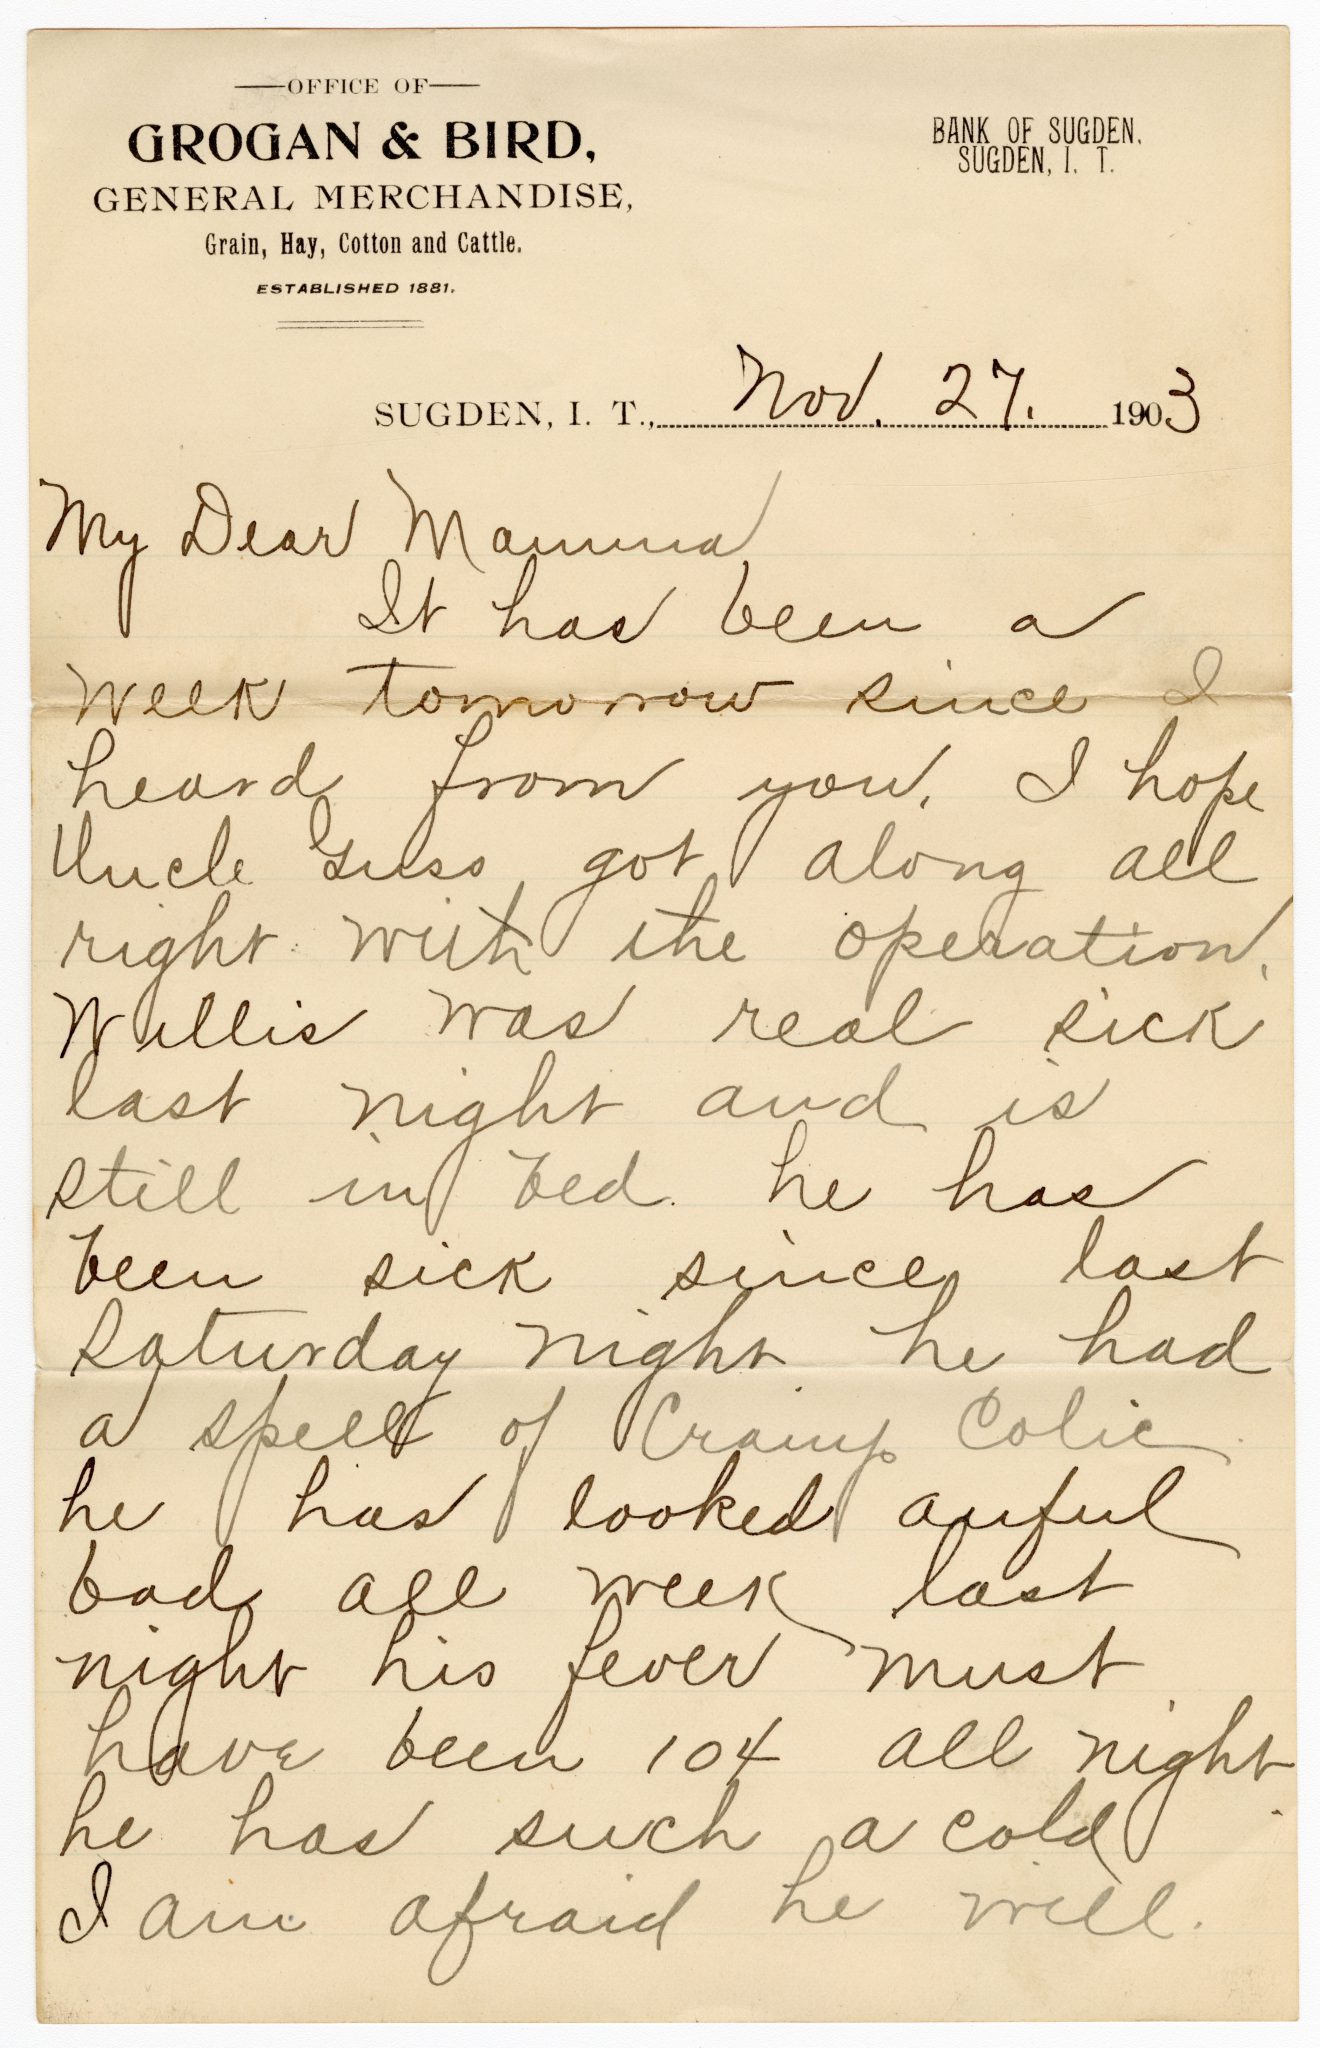 OFFICE OF
GROGAN & BIRD,
GENERAL MERCHANDISE,
Grain, Hay, Cotton and Cattle.
ESTABLISHED 1881.
BANK OF SUGDEN.
SUGDEN, I. T.
SUGDEN, I. T., Nov. 27. 1903
My Dear Mamma
It has been a
week tomorrow since I
heard from you. I hope
Uncle Guss got along all
right with the operation.
Willis was real sick
last night and is
still in bed. he has
been sick since last
Saturday night he had
a spell of Cramp Colic
he has looked awful
bad all week last
night his fever must
have been 104 all night
he has such a cold
I am afraid he will.